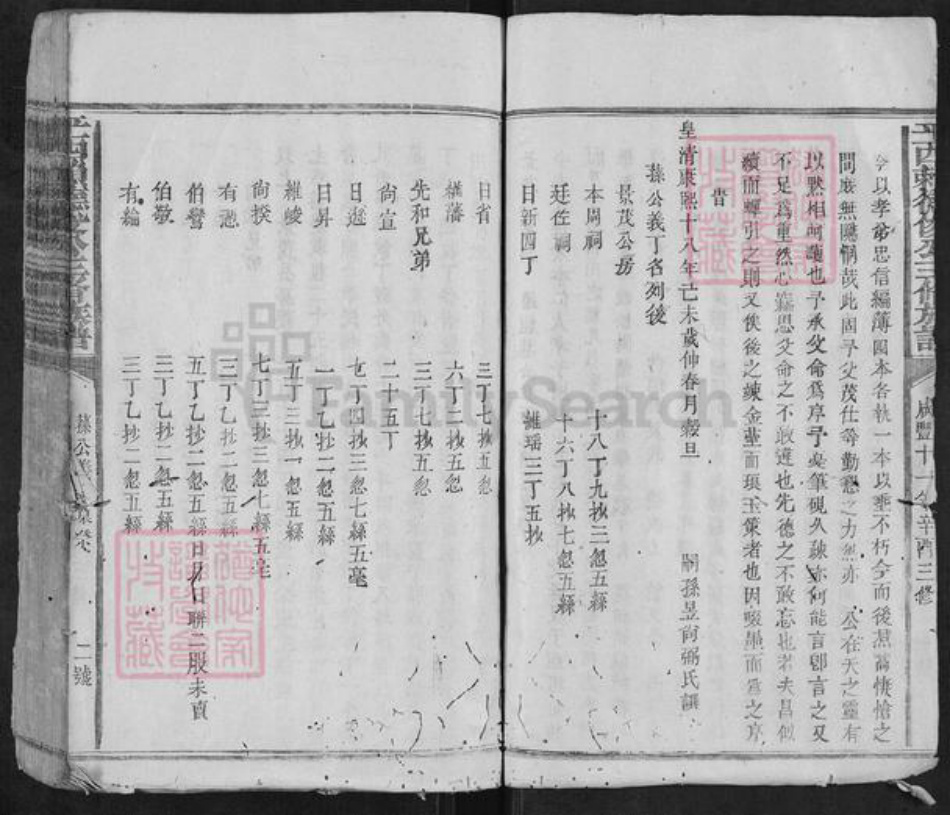 今以孝爺忠信編薄四本各執一本以垂不朽今而後焄蒿悽愴之
間庶無隱恫哉此固予父茂仕等勤懇之力然亦公在天之靈有
以默相呵護也予承父命爲序予吳筆硯久疎亦何能言卽言之又
不足爲重然心竊思父命之不敢違也先德之不敢忘也若夫昌似
續而輝引之則又俟後之竦金蓋而琪玉策者也因啜墨而爲之序
旹
皇清康熙十八年己未歲仲春月穀旦
嗣孫昱尙弼氏譔
蓀公義丁名列後
景茂公房
本周祠 十八丁九抄三忽五絲
廷佐祠 十六丁八抄七忽五絲
日新四丁 維瑶三丁五抄
日省 三丁七抄五忽
楳藩 六丁二抄五忽
先和兄弟 三丁七抄五忽
尙宣 二十五丁
日遊 七丁四抄三忽七絲五毫
日昇 一丁乙抄二忽五絲
維峻 五丁三抄一忽五絲
尙揆 七丁三抄三忽七絲五毫
有懣 三丁乙抄二忽五絲
伯鸞 五丁乙抄二忽五絲日乃日聯二股未賣
伯敬 三丁乙抄二忽五絲
有綸 三丁乙抄二忽五絲
咸豐十一年辛酉三修
蓀公義
二號
FamilySearch